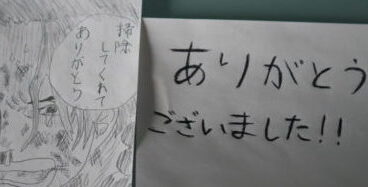 掃除
してくれて
ありがとう
ありがとう
ございました!!